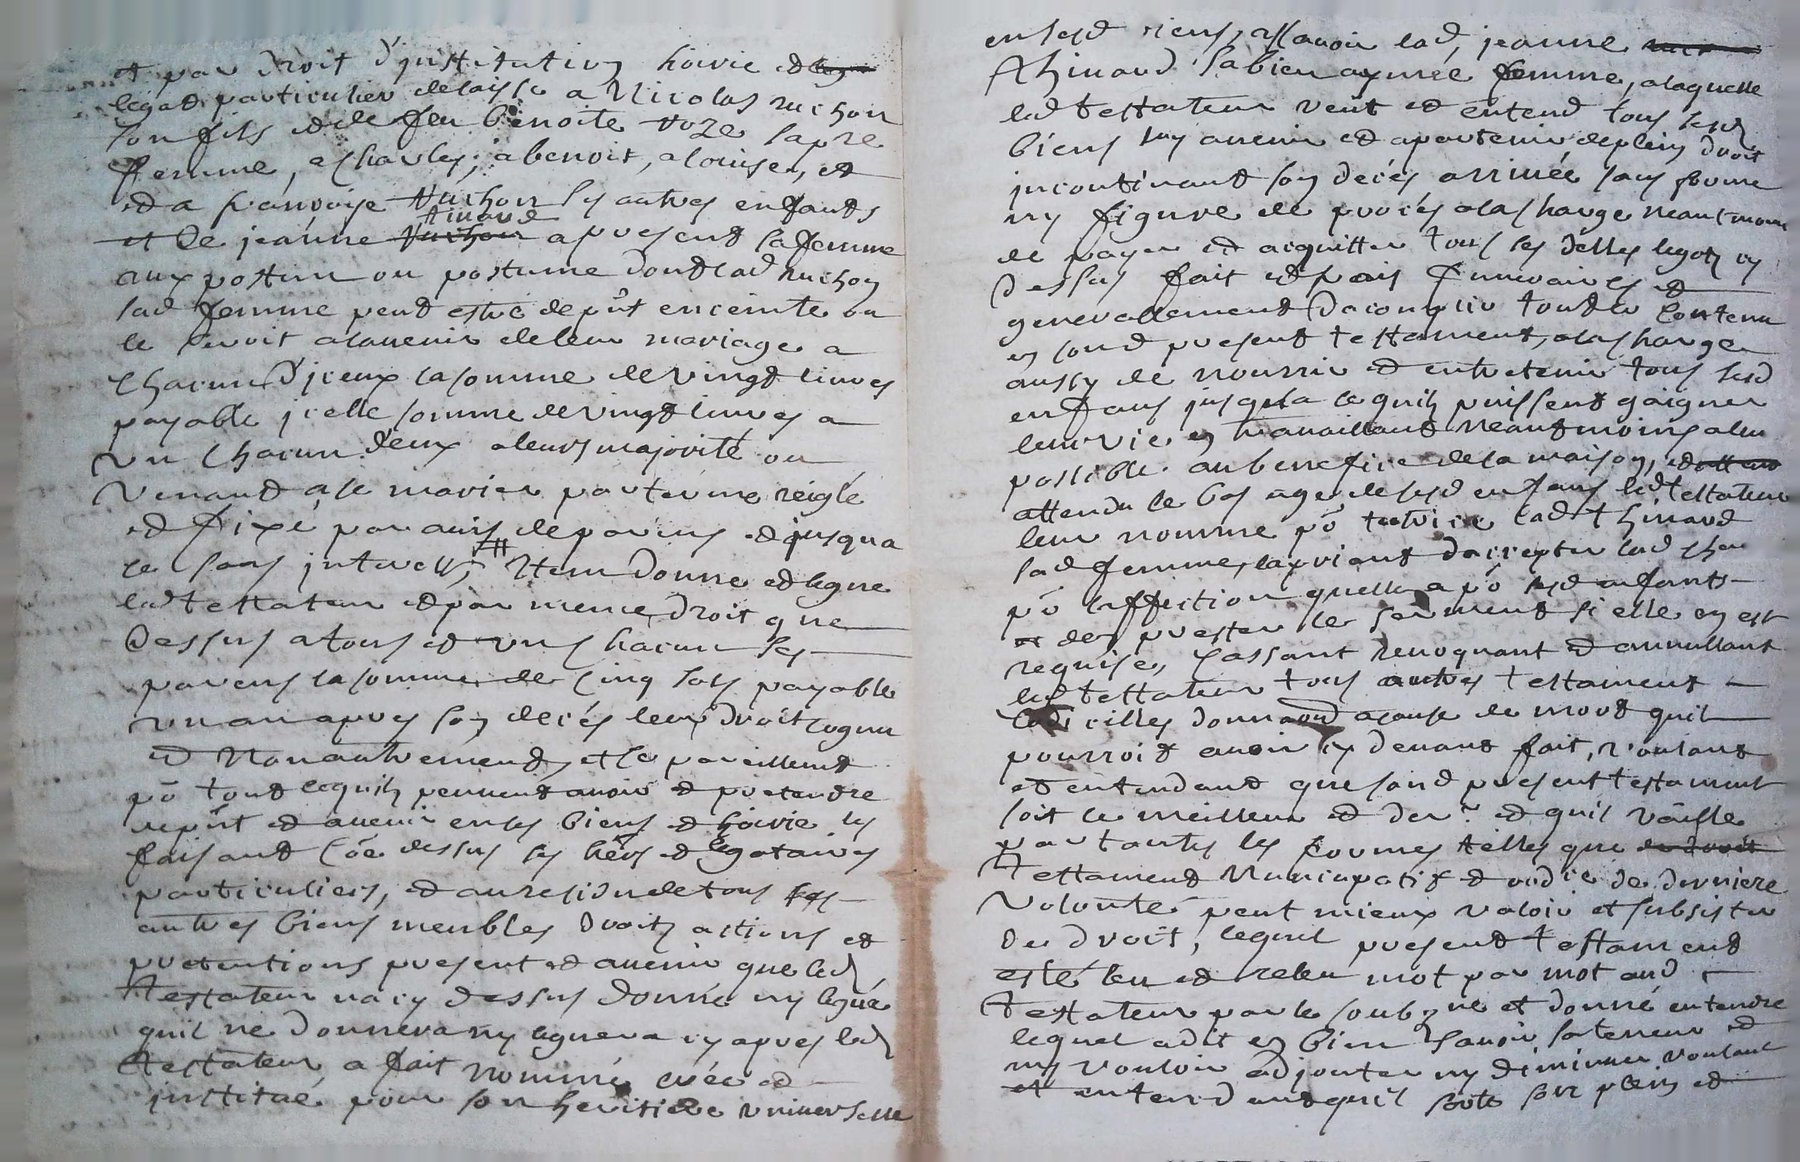 et par droit d'institution hoirie et
legat particulier delaisse a Nicolas Vuchon
son fils et de feu benoite voze sa p.re
femme, a charles, a benoit, a louise, et
et a francoise Vuchon ses autres enfants
et de jeanne thinaud a present sa femme
aux postum ou postume dont lad vuchon
sad femme peut estre de pnt enceinte ou
le seroit a lavenir de leur mariage a
chacun d'jceux la somme de vingt livres
payable jcelle somme de vingt livres a
un chacun d'eux a leurs majorité ou
venant a se marier par terme reigle
et fixé par avis de parens et jusqua
ce sans jnterest, # Jtem donne et legue
led testateur et par meme droit que
dessus a tous et uns chacun ses
parens la somme de cinq sols payable
un an apres son decés leur droit cognu
et non autrement, et ce pareillemt
po tout ce quils peuvent avoir et pretendre
de pnt et avenir en ses biens et hoirie les
faisant coe dessus ses hērs et legataires
particuliers, et au residu de tous ses
autres biens meubles droits actions et
pretentions present et avenir que led
testateur na cy dessus donné ny legué
quil ne donnera ny leguera cy apres led
testateur a fait nommé créé et
jnstitué pour son heritiere universelle
en sesd biens, assavoir lad, jeanne
thinaud sa bien aymée femme, a laquelle
led testateur veut et entend tous sesd
biens luy avenir et apartenir de plein droit
jncontinant son decés arrivée sans forme
ny figure de procés a la charge neantmoins
de payer et acquitter tous les delles legats cy
dessus fait et frais funeraires et
generallement dacomplir tout le contenu
en sond present testament, a la charge
aussy de nourrir et entretenir tous sesd
enfans jusqua ce quils puissent gaigner
leur vie en travaillant neantmoins a leur
possible au benefice de la maison,
attendu le bas age de sesd enfans led testateur
leur nomme po tutrice lad thinaud
sad femme, la priant daccepter lad char
po laffection quelle a po sesd enfants
et den prester le serment si elle en est
requise, cassant revoquant et annullant
led testateur tous autres testament
codicilles donnaond a cause de mort quil
pourroit avoir cy devant fait, voulant
et entendant que sond present testament
soit le meilleur et der.r et quil vaille
par toutes les formes telles que
testament nuncupatif et ordre de derniere
volonté peut mieux valoir et subsister
de droit, lequel present testament
a esté leu et releu mot par mot aud
testateur par le soubz.ne et donné entendre
lequel a dit en bien savoir sa teneur et
ny vouloir adjouter ny diminuer voulant
et entendant quil sorte son plein et